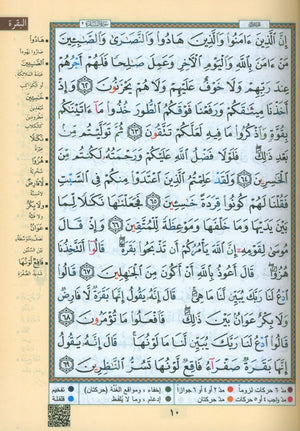 البقرة
إِنَّ ٱلَّذِينَ ءَامَنُوا۟ وَٱلَّذِينَ هَادُوا۟ وَٱلنَّصَٰرَىٰ وَٱلصَّٰبِـِٔينَ
مَنْ ءَامَنَ بِٱللَّهِ وَٱلْيَوْمِ ٱلْءَاخِرِ وَعَمِلَ صَٰلِحًا فَلَهُمْ أَجْرُهُمْ
عِندَ رَبِّهِمْ وَلَا خَوْفٌ عَلَيْهِمْ وَلَا هُمْ يَحْزَنُونَ ٦٢ وَإِذْ
أَخَذْنَا مِيثَٰقَكُمْ وَرَفَعْنَا فَوْقَكُمُ ٱلطُّورَ خُذُوا۟ مَآ ءَاتَيْنَٰكُم
بِقُوَّةٍ وَٱذْكُرُوا۟ مَا فِيهِ لَعَلَّكُمْ تَتَّقُونَ ٦٣ ثُمَّ تَوَلَّيْتُم مِّنۢ
بَعْدِ ذَٰلِكَ ۖ فَلَوْلَا فَضْلُ ٱللَّهِ عَلَيْكُمْ وَرَحْمَتُهُۥ لَكُنتُم مِّنَ
ٱلْخَٰسِرِينَ ٦٤ وَلَقَدْ عَلِمْتُمُ ٱلَّذِينَ ٱعْتَدَوْا۟ مِنكُمْ فِى ٱلسَّبْتِ
فَقُلْنَا لَهُمْ كُونُوا۟ قِرَدَةً خَٰسِـِٔينَ ٦٥ فَجَعَلْنَٰهَا نَكَٰلًا لِّمَا
بَيْنَ يَدَيْهَا وَمَا خَلْفَهَا وَمَوْعِظَةً لِّلْمُتَّقِينَ ٦٦ وَإِذْ قَالَ
مُوسَىٰ لِقَوْمِهِۦٓ إِنَّ ٱللَّهَ يَأْمُرُكُمْ أَن تَذْبَحُوا۟ بَقَرَةً ۖ قَالُوٓا۟ أَتَتَّخِذُنَا
هُزُوًا ۖ قَالَ أَعُوذُ بِٱللَّهِ أَنْ أَكُونَ مِنَ ٱلْجَٰهِلِينَ ٦٧
قَالُوا۟ ٱدْعُ لَنَا رَبَّكَ يُبَيِّن لَّنَا مَا هِىَ ۚ قَالَ إِنَّهُۥ يَقُولُ إِنَّهَا بَقَرَةٌ لَّا فَارِضٌ
وَلَا بِكْرٌ عَوَانٌۢ بَيْنَ ذَٰلِكَ ۖ فَٱفْعَلُوا۟ مَا تُؤْمَرُونَ ٦٨
قَالُوا۟ ٱدْعُ لَنَا رَبَّكَ يُبَيِّن لَّنَا مَا لَوْنُهَا ۚ قَالَ إِنَّهُۥ يَقُولُ
إِنَّهَا بَقَرَةٌ صَفْرَآءُ فَاقِعٌ لَّوْنُهَا تَسُرُّ ٱلنَّٰظِرِينَ ٦٩
هَادُوا
ٱلصَّٰبِـِٔينَ
خَٰسِـِٔينَ
نَكَٰلًا
هُزُوًا
لَّا فَارِضٌ
وَلَا بِكْرٌ
عَوَانٌ
فَاقِعٌ لَّوْنُهَا
شديد الصفرة
مدّ ٦ حركات لزوماً
مدّ ٢ أو ٤ أو ٦ جوازاً
إخفاء، ومواقع الغُنَّة (حركتان)
تفخيم
مدّ واجب ٤ أو ٥ حركات
مدّ حركتان
إدغام، وما لا يُلفَظ
قلقلة
١٠